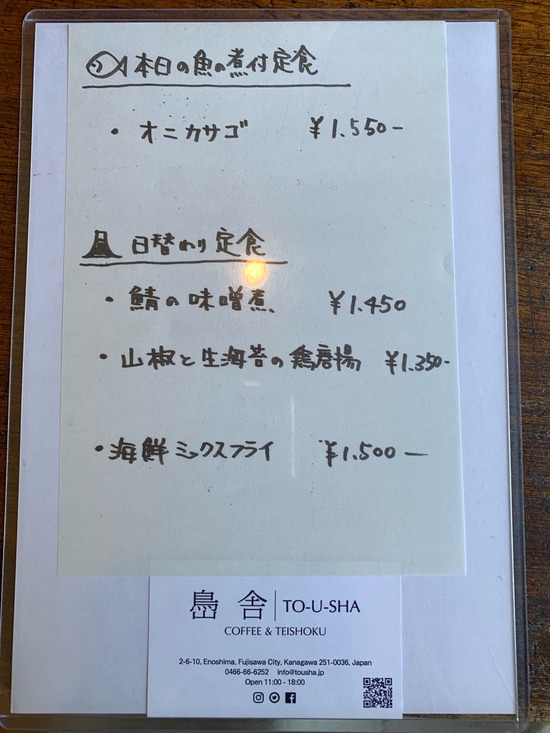 本日の魚の煮付定食
・オニカサゴ ¥1.550-
日替わり定食
・鯖の味噌煮 ¥1.450
・山椒と生海苔の鶏唐揚 ¥1.350-
・海鮮ミックスフライ ¥1.500-
島舎 TO-U-SHA
COFFEE & TEISHOKU
2-6-10, Enoshima, Fujisawa City, Kanagawa 251-0036, Japan
0466-66-6252 info@tousha.jp
Open 11:00 - 18:00